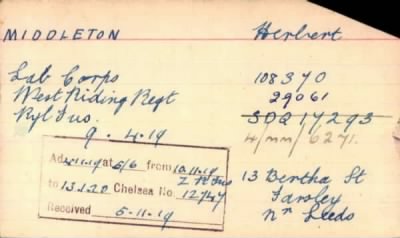 MIDDLETON Herbert
Lab Corps 108370
West Riding Regt 29061
Ryl Fus. SDQ 17293
9. 4.19 4/mm/6271.
Adm 4.11.19 at 5/6 from 10.11.19
to 13.1.20 Chelsea No 12747
Received 5-11-19
13 Bertha St
Farsley
Nr Leeds